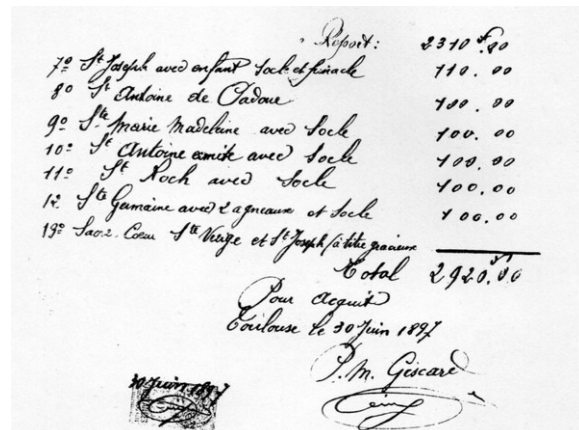 Report: 2310 f. 00
7º St Joseph avec enfant Socle et pinacle 110. 00
8º St Antoine de Padoue 100. 00
9º Ste Marie Madeleine avec Socle 100. 00
10º St Antoine ermite avec Socle 100. 00
11º St Roch avec Socle 100. 00
12 Ste Germaine avec 2 agneaux et Socle 100. 00
13º Sacré-Coeur Ste Vierge et St Joseph (à titre gracieux
Total 2920. f 00
Pour acquit
Toulouse le 30 Juin 1897
J. M. Giscard
30 Juin 1897